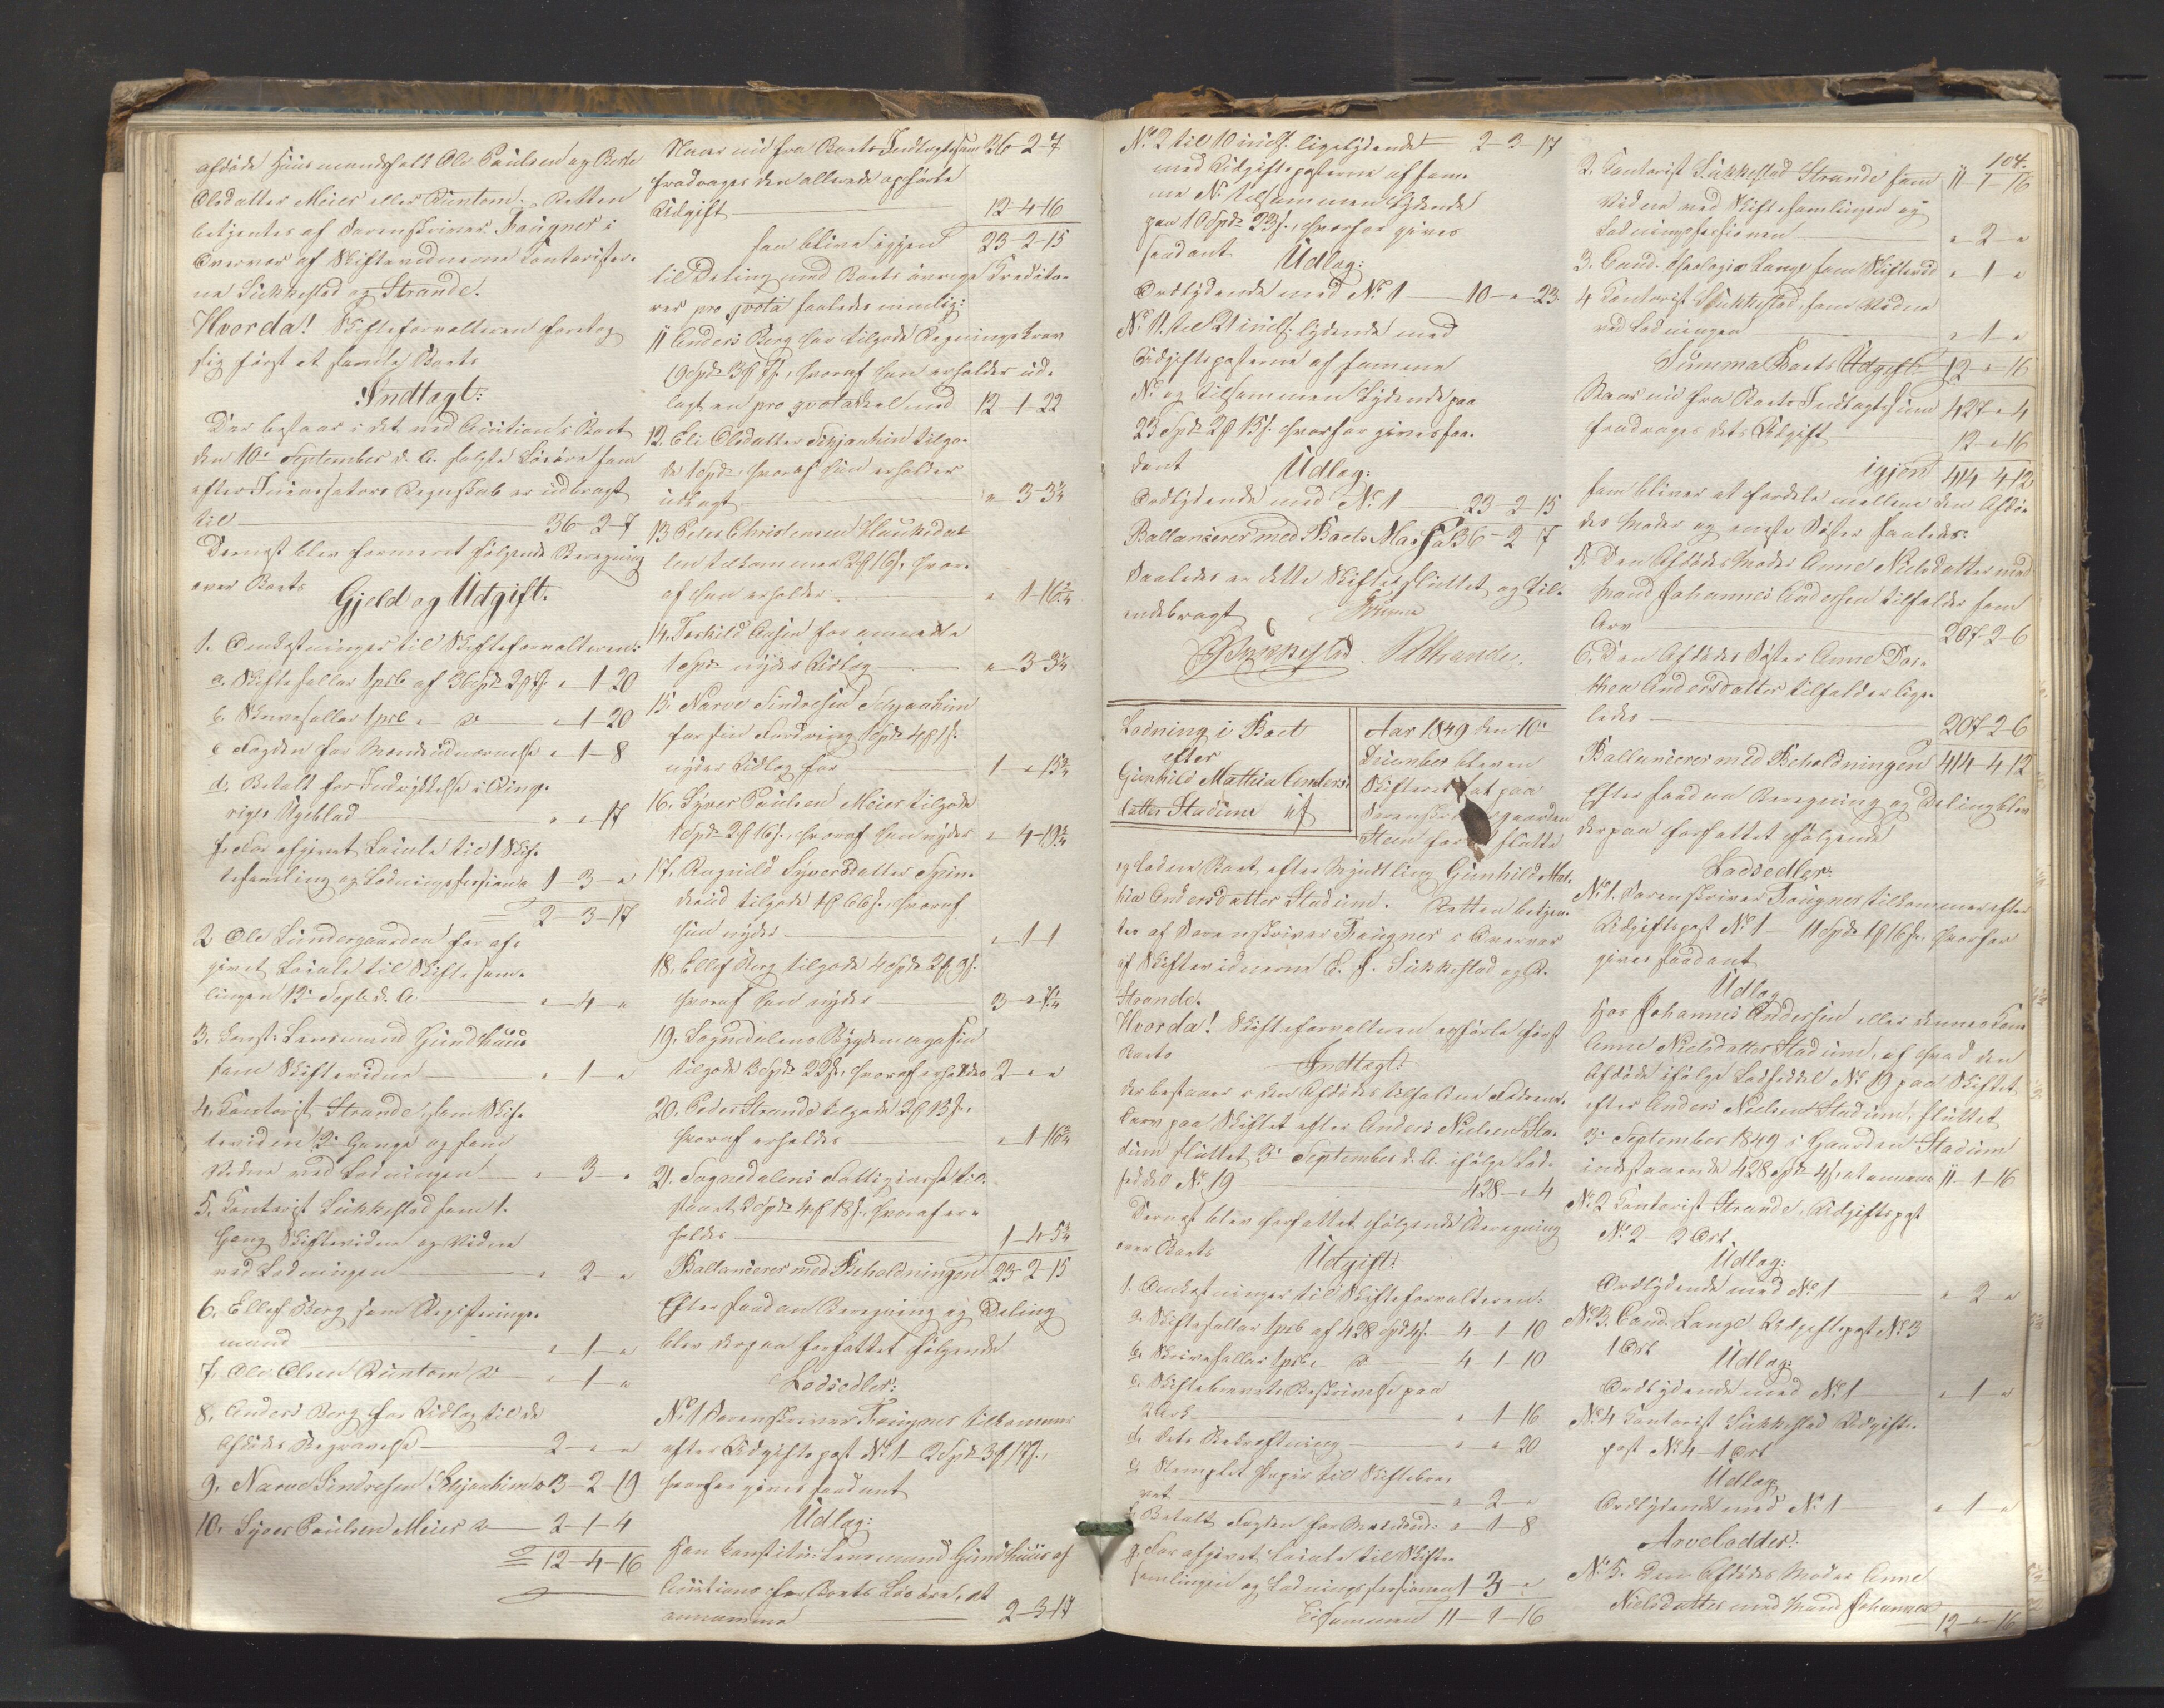 afdøde Huusmandsfolk Ole Paulsen og Berte
Olsdatter Meier eller Runtom. Retten
betjentes af Sorenskriver Faugner i
Overvær af Skiftevidnerne Kontoristerne
Sükkestad og Strande.
Hvorda! Skifteforvalteren foretog
sig først at samle Boets
Indtægt:
Der bestaar i det ved Auction i Boet
den 10de September d. A. solgte Løsøre som
efter Incassators Regnskab er udbragt
til 36-2-7
Dernæst blev formeret følgende Beregning
over Boets
Gjeld og Udgift.
1. Omkostninger til Skifteforvalteren:
a. Skiftesallær 1pCt af 36 Spd 2 # 7 s. " 1-20
b. Skriversallær 1pCt " do " 1-20
c. Fogden for " 1-8
d. Betalt for Indrykkelse i Ringeriges Ugeblad " " 17
f. For afgivet Locale til 1 Skiftesamling og Lodningssessionen 1-3-"
2-3-17
2. Ole Lundesgaarden for afgivet
Locale til Skiftesamlingen
12te Septb. d. A. " 4-"
3. Const. Lensmand Gundhuus
som Skiftevidne " 1-"
4. Kontorist Strande, som Skiftevidne
2de Gange og som
Vidne ved Lodningen " 3-"
5. Kontorist Sükkestad som 1.
Gang Skiftevidne og Vidne
ved Lodningen " 2-"
6. Ellef Berg som Registeringsmand " 1-"
7. Ole Olsen Runtom do " 1-"
8. Anders Berg for Udlæg til de
Afdødes Begravelse 2-"-"
9. Narve Sindresen 3-2-19
10. Syver Paulsen Meier do 2-1-4
12-4-16
Naar nu fra Boets Indtægtssum 36-2-7
fradrages den allerede opførte
Udgift 12-4-16
saa blive igjen 23-2-15
til Deling med Boets øvrige Creditorer
pro qvota saaledes nemlig:
11. Anders Berg har tilgode Regningskrav
19 Spd 3 # 7 s., hvoraf han erholder udlagt
en pro qvota deel med 12-1-22
12. Eli Olsdatter tilgode
1 Spd, hvoraf hun erholder
udlagt " 3-3¼
13. Peter Christensen
tilkommer 2 # 16 s. hvoraf
han erholder " 1-16
14. Torkild for
1 Spd nyder Udlæg " 3-3¼
15. Narve Sindresen
for sin Fordring 1 Spd 4 # 1 s.
nyder Udlæg for 1-"-15
16. Syver Paulsen Meier tilgode
1 Spd 2 # 16 s., hvoraf han nyder " 4-19
17. Ragnild Syversdatter
tilgode hvoraf
hun nyder " 1-1
18. Ellef Berg tilgode 4 Spd 2 # 9 s.
hvoraf han nyder 3-"-7¼
19. Sognedalens Bygdemagasin
tilgode 3 Spd 22 s., hvoraf erholdes 2-"-"
20. Peder Strande tilgode 2 # 15 s.,
hvoraf erholdes " 1-16
21. Sognedalens Fattigcasse
2 Spd 4 # 18 s., hvoraf erholdes
1-4-5
Ballancerer med Beholdningen 23-2-15
Efter saadan Beregning og Deling
blev derpaa forfattet følgende
Lodsedler:
No 1 Sorenskriver Faugner tilkommer
efter Udgiftspost No 1 2 Spd 3 # 17 s.,
hvorfor gives saadant
Udlæg:
Hos Constitu: Lensmand Gundhuus af
Auctionen for Boets Løsøre, at
annamme 2-3-17
No 2 til 10 incl. ligelydende 2-3-17
med Udgiftsposterne af samme
No tilsammen lydende
paa 10 Spd 23 s., hvorfor gives
saadant
Udlæg:
Ordlydende med No 1 10-"-23
No 11 til 21 incl. lydende med
Udgiftsposterne af samme
No og tilsammen lydende paa
23 Spd 2 # 15 s. hvorfor gives saadant
Udlæg:
Ordlydende med No 1 23-2-15
Ballancerer med Boets Massa 36-2-7
Saaledes er dette Skifte sluttet og tilendebragt
Sükkestad Strande.
Lodning i Boet
efter
Gunhild Mathia Andersdatter
Stadum
Aar 1849 den 10de
December blev en
Skifteret sat paa
Sorenskrivergaarden
Steen for at slutte
og lodne Boet efter Myndtling Gunhild Mathia
Andersdatter Stadum. Retten betjentes
af Sorenskriver Faugner i Overvær
af Skiftevidnerne Sükkestad og
Strande.
Hvorda! Skifteforvalteren opførte først
Boets
Indtægt:
der bestaaer i den Afdødes tilfaldne Fædrenearv
paa Skiftet efter Anders Nielsen Stadum
sluttet 3de September d. A. ifølge Lodseddel
No 19 428-"-4
Dernæst blev forfattet følgende Beregning
over Boets
Udgift:
1. Omkostninger til Skifteforvalteren:
a. Skiftesallær 1pCt af 428 Spd 4 s. 4-1-10
b. Skriversallær 1pCt " do 4-1-10
c. Skiftebrevets Beskrivelse paa
2 Ark " 1-16
d. Dets Bekræftning " " 20
e. Stemplet Papir til Skiftebrevet " 2-"
f. Betalt Fogden for " 1-8
g. For afgivet Locale til Skiftesamlingen
og Lodningssessionen 1-3-"
Tilsammen 11-1-16
104.
11-1-16
2. Kontorist Sükkestad Strande som
Vidne ved Skiftesamlingen og
Lodningssessionen " 2-"
3. Cand. theologiæ Lange som Skiftevid. " 1-"
4. Kontorist Sükkestad, som Vidne
ved Lodningen " 1-"
Summa Boets Udgift 12-"-16
Naar nu fra Boets Indtægtssum 427-"-4
fradrages dets Udgift 12-"-16
igjen 414-4-12
som bliver at fordele mellem den Afdødes
Moder og eneste Søster saaledes:
5. Den Afdødes Moder Anne Nielsdatter med
Mand Johannes Andersen tilfalder som
Arv 207-2-6
6. Den Afdødes Søster Anne Dorthea
Andersdatter tilfalder ligeledes
207-2-6
Ballancerer med Beholdningen 414-4-12
Efter saadan Beregning og Deling blev
derpaa forfattet følgende
Lodsedler:
No 1. Sorenskriver Faugner tilkommer efter
Udgiftspost No 1 11 Spd 1 # 16 s., hvorfor
gives saadant
Udlæg
Hos Johannes Andersen eller dennes Kone
Anne Nielsdatter Stadum, af hvad den
Afdøde ifølge Lodseddel No 19 paa Skiftet
efter Anders Nielsen Stadum, sluttet
3de September 1849 i Gaarden Stadum
indestaaende 428 Spd 4 s., at annamme 11-1-16
No 2 Kontorist Strande, Udgiftspost
No 2 2 Ort
Udlæg:
Ordlydende med No 1 " 2-"
No 3. Cand. Lange Udgiftspost No 3
1 Ort
Udlæg:
Ordlydende med No 1 " 1-"
No 4 Kontorist Sükkestad Udgiftspost
No 4 1 Ort
Udlæg
Ordlydende med No 1 " 1-"
Arvelodder:
No 5. Den Afdødes Moder Anne
Nielsdatter med Mand Johannes
12-"-16